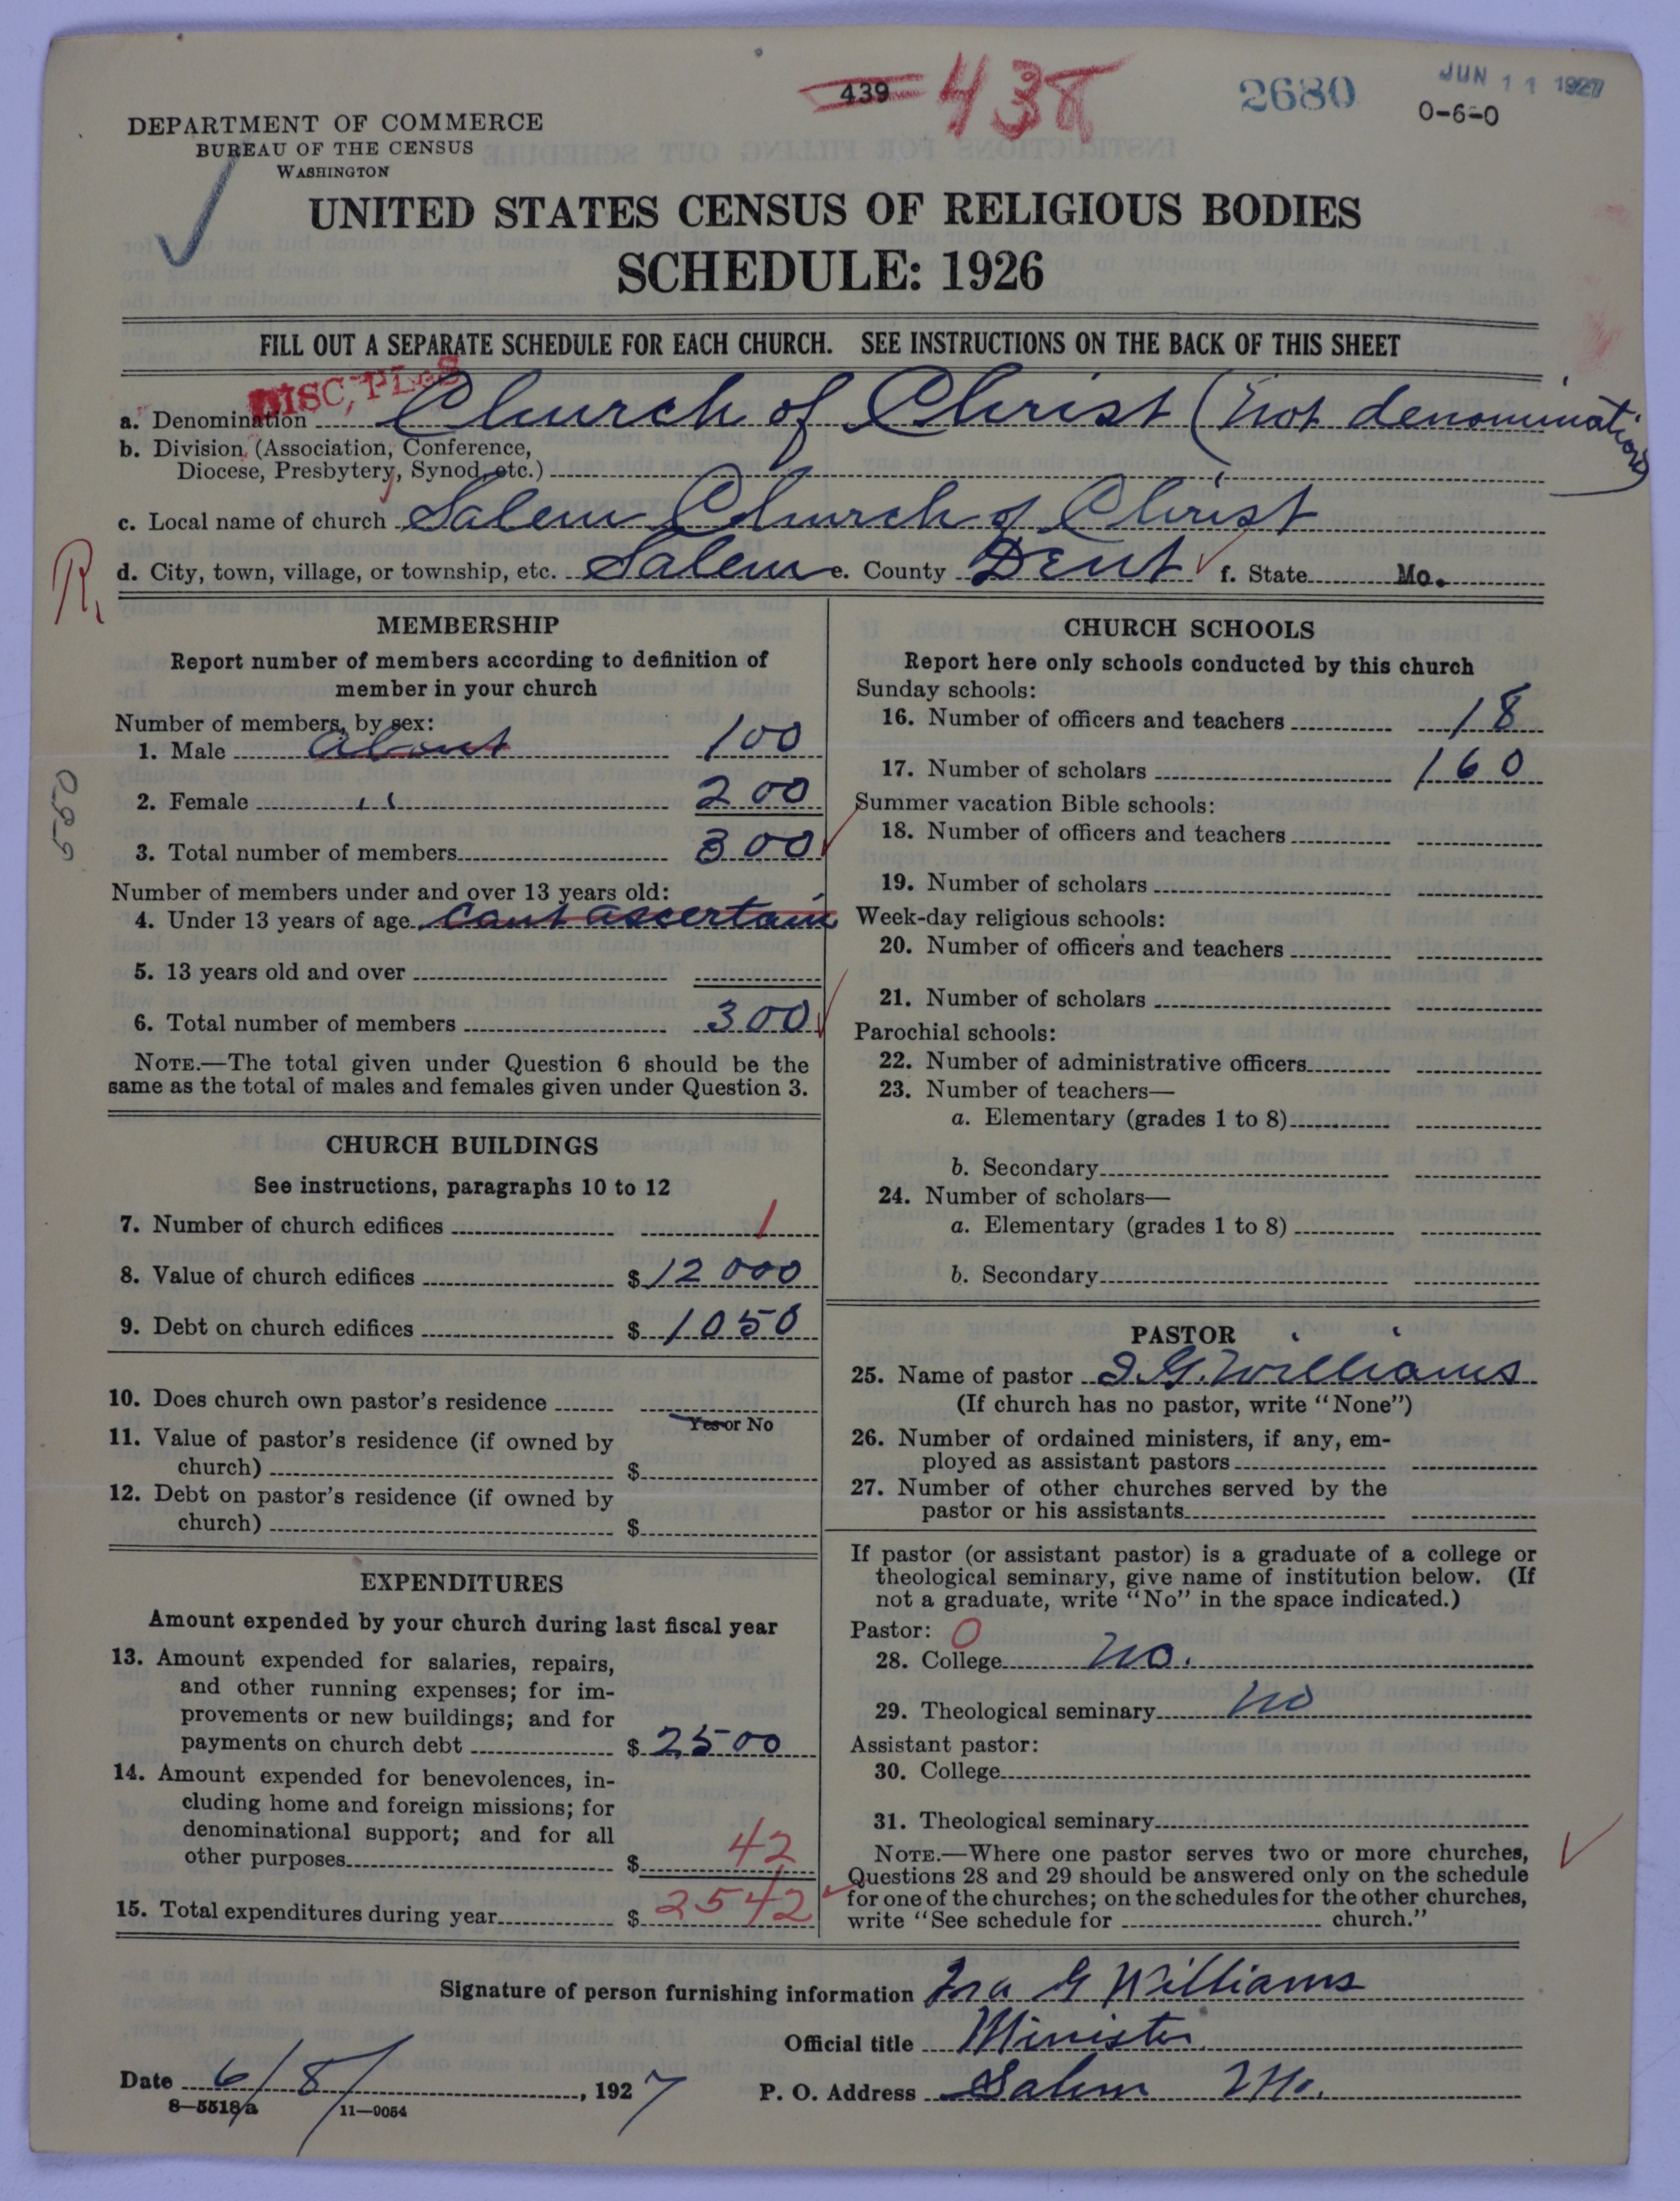 439 438 2680 JUN 11 1927
0-6-0
DEPARTMENT OF COMMERCE
BUREAU OF THE CENSUS
WASHINGTON
UNITED STATES CENSUS OF RELIGIOUS BODIES
SCHEDULE: 1926
FILL OUT A SEPARATE SCHEDULE FOR EACH CHURCH. SEE INSTRUCTIONS ON THE BACK OF THIS SHEET
DISCIPLES
a. Denomination Church of Christ (not denomination)
b. Division (Association, Conference,
Diocese, Presbytery, Synod, etc.)
c. Local name of church Salem Church of Christ
R.
d. City, town, village, or township, etc. Salem e. County Dent f. State Mo.
MEMBERSHIP
Report number of members according to definition of
member in your church
Number of members, by sex:
1. Male about 100
2. Female " 200
3. Total number of members 300
Number of members under and over 13 years old:
4. Under 13 years of age cant ascertain
5. 13 years old and over
6. Total number of members 300
NOTE.—The total given under Question 6 should be the
same as the total of males and females given under Question 3.
CHURCH BUILDINGS
See instructions, paragraphs 10 to 12
7. Number of church edifices 1
8. Value of church edifices $ 12000
9. Debt on church edifices $ 1050
10. Does church own pastor's residence
Yes or No
11. Value of pastor's residence (if owned by
church) $
12. Debt on pastor's residence (if owned by
church) $
EXPENDITURES
Amount expended by your church during last fiscal year
13. Amount expended for salaries, repairs,
and other running expenses; for im-
provements or new buildings; and for
payments on church debt $ 2500
14. Amount expended for benevolences, in-
cluding home and foreign missions; for
denominational support; and for all
other purposes $ 42
15. Total expenditures during year $ 2542
CHURCH SCHOOLS
Report here only schools conducted by this church
Sunday schools:
16. Number of officers and teachers 18
17. Number of scholars 160
Summer vacation Bible schools:
18. Number of officers and teachers
19. Number of scholars
Week-day religious schools:
20. Number of officers and teachers
21. Number of scholars
Parochial schools:
22. Number of administrative officers
23. Number of teachers—
a. Elementary (grades 1 to 8)
b. Secondary
24. Number of scholars—
a. Elementary (grades 1 to 8)
b. Secondary
PASTOR
25. Name of pastor I. G. Williams
(If church has no pastor, write "None")
26. Number of ordained ministers, if any, em-
ployed as assistant pastors
27. Number of other churches served by the
pastor or his assistants
If pastor (or assistant pastor) is a graduate of a college or
theological seminary, give name of institution below. (If
not a graduate, write "No" in the space indicated.)
Pastor: 0
28. College no.
29. Theological seminary no
Assistant pastor:
30. College
31. Theological seminary
NOTE.—Where one pastor serves two or more churches,
Questions 28 and 29 should be answered only on the schedule
for one of the churches; on the schedules for the other churches,
write "See schedule for church."
Signature of person furnishing information Ira G Williams
Official title Minister
Date 6/8/, 1927 P. O. Address Salem Mo.
8—5518a 11—9054